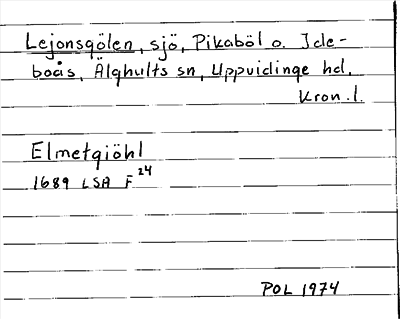 Lejonsgölen, sjö, Pikaböl o. Ide-
boås, Älghults sn, Uppvidinge hd,
Kron.l.
Elmetgiöhl
1689 LSA F24
POL 1974